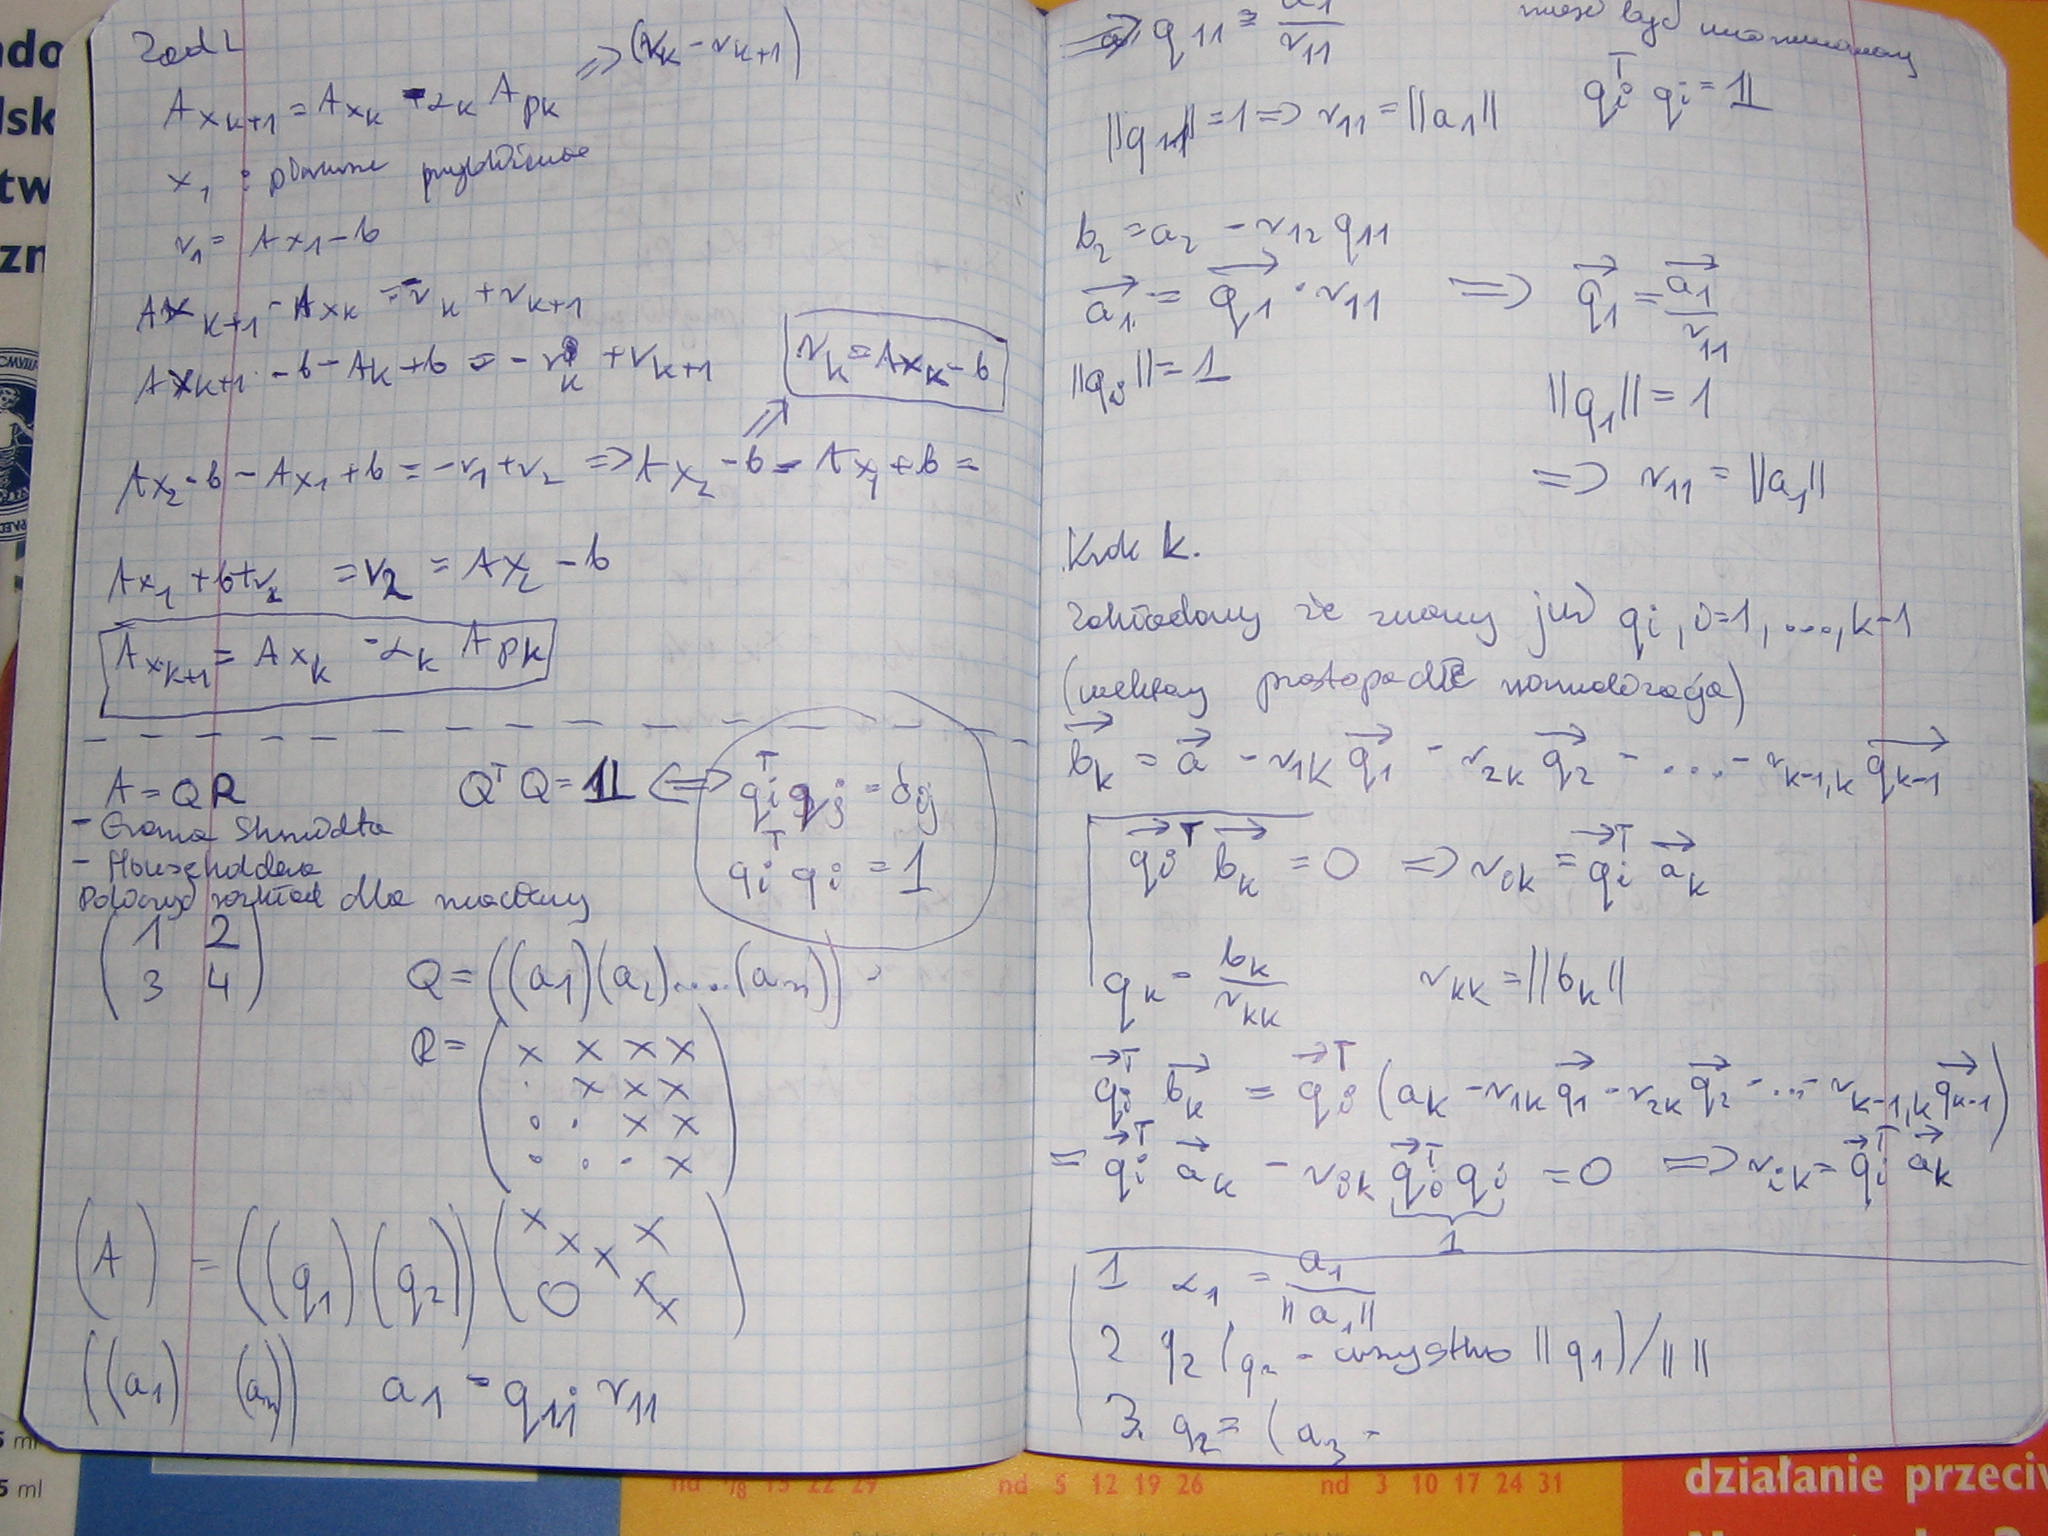 Zad 2
A x_{k+1} = A x_k - α_k A p_k ⇒ (r_k - r_{k+1})
x_1 :
r_1 = A x_1 - b
A x_{k+1} - A x_k = -r_k + r_{k+1}
A x_{k+1} - b - A_k + b = - r_k + r_{k+1}
r_k = A x_k - b
A x_2 - b - A x_1 + b = -r_1 + r_2 ⇒ A x_2 - b - A x_1 + b =
A x_1 + b + r_2 = r_2 = A x_2 - b
A x_{k+1} = A x_k - α_k A p_k
A = QR
Q^T Q = 1 ⇔ q_i^T q_j = δ_{ij}
q_i^T q_i = 1
- Grama Shmidta
- Householdera
Policzyć rozkład dla macierzy
( 1 2
3 4 )
Q = ((a_1)(a_2)....(a_n))
R = ( x x x x
. x x x
. . x x
. . . x )
(A) = ((q_1)(q_2)) ( x x x x
0 x x )
((a_1) (a_n)) a_1 = q_{1j} r_{11}
⇒ q_{11} = a_1 / r_{11}
może być
||q_{11}|| = 1 ⇒ r_{11} = ||a_1||
q_i^T q_i = 1
b_2 = a_2 - r_{12} q_{11}
a_1 = q_1 · r_{11} ⇒ q_1 = a_1 / r_{11}
||q_i|| = 1
||q_1|| = 1
⇒ r_{11} = ||a_1||
Krok k.
Zakładamy że znamy już q_i, i=1, ..., k-1
(wektory prostopadłe normalizacja)
b_k = a - r_{1k} q_1 - r_{2k} q_2 - .... - r_{k-1,k} q_{k-1}
q_i^T b_k = 0 ⇒ r_{ik} = q_i^T a_k
q_k = b_k / r_{kk} r_{kk} = ||b_k||
q_i^T b_k = q_i^T (a_k - r_{1k} q_1 - r_{2k} q_2 - ... - r_{k-1,k} q_{k-1})
= q_i^T a_k - r_{ik} q_i^T q_i = 0 ⇒ r_{ik} = q_i^T a_k
1
1 α_1 = a_1 / ||a_1||
2 q_2 (q_2 - wszystko || q_1) / || ||
3. q_2 = (a_3 -
5 ml
5 ml
nd 1/8 15 22 29
nd 5 12 19 26
nd 3 10 17 24 31
działanie przeciw